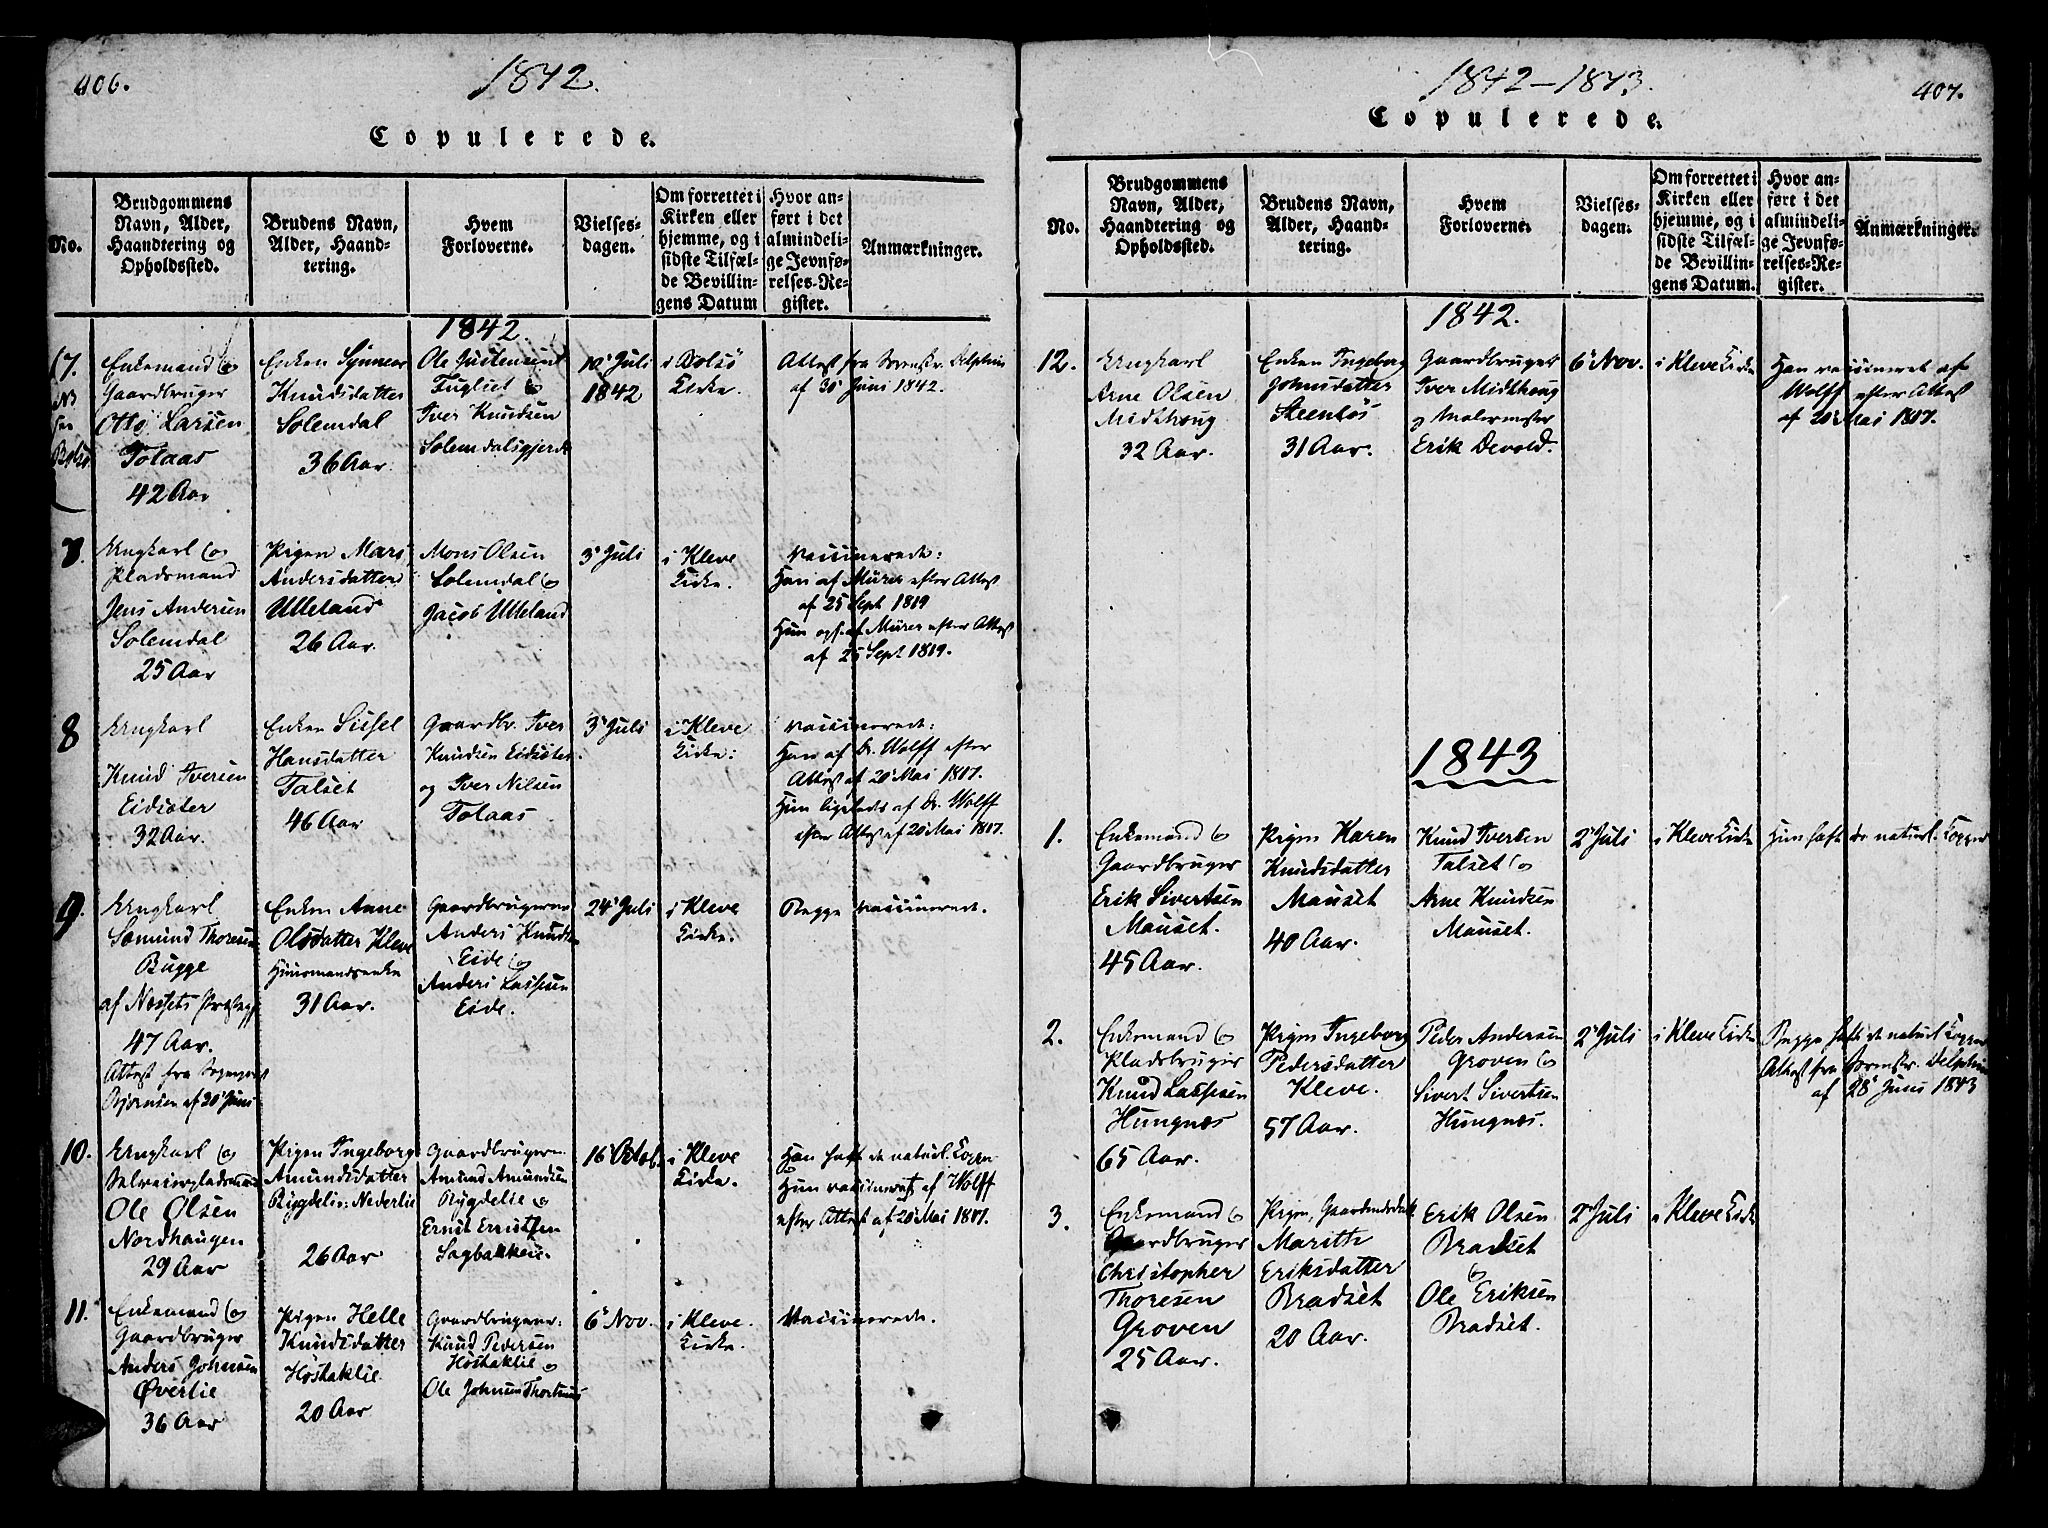 406.
1842.
Copulerede.
No.
Brudgommens
Navn, Alder,
Haandtering og
Opholdssted.
Brudens Navn,
Alder, Haand-
tering.
Hvem
Forloverne.
Vielses-
dagen.
Om forrettet i
Kirken eller
hjemme, og i
sidste Tilfæl-
de Bevillin-
gens Datum
Hvor an-
ført i det
almindeli-
ge Jevnfø-
relses-Re-
gister.
Anmærkninger.
1842.
7.
Enkemand og
Gaardbruger
Otto Larsen
Tolaas
42 Aar
Enken Synneve
Knudsdatter
Solemdal
36 Aar.
Ole Justensen
Fugliet og
Iver Knudsen
Solemdalsgjerde
10 Juli
1842
i Bolsö
Kirke.
Attest fra Sorenskr. Delphin
af 30 Juni 1842.
8.
Ungkarl og
Pladsmand
Jens Andersen
Solemdal
25 Aar
Pigen Mari
Andersdatter
Ulleland
26 Aar.
Mons Olsen
Solemdal og
Jacob Ulleland
3 Juli
i Kleve
Kirke.
Vaccinerede:
Han af Mürer efter Attest
af 25 Sept 1819
Hun ogs. af Mürer efter Attest
af 25 Sept 1819.
8
Ungkarl
Knud Iversen
Eidsöter
32 Aar.
Enken Sissel
Hansdatter
Talset
46 Aar
Gaardbr. Iver
Knudsen Eidsöter
og Iver Nilsen
Tolaas
3 Juli
i Kleve
Kirke:
Vaccinerede:
Han af Dr. Wolff efter
Attest af 20 Mai 1817.
Hun ligeleds af Dr. Wolff
efter Attest af 20 Mai 1817.
9.
Ungkarl
Sæmund Thoresen
Bugge
af Næssets Præstegj.
47 Aar.
Attest fra Sogneprest
Björnsen af 20 Juni
Enken Anne
Olsdatter Kleve
Huusmandsenke
31 Aar.
Gaardbrugerne
Anders Knudsen
Eide og
Anders Lassesen
Eide.
24 Juli
i Kleve
Kirke.
Begge vaccinerede.
10.
Ungkarl og
Ole Olsen
Nordhaugen
29 Aar
Pigen Ingeborg
Amundsdatter
Rygdelie: Nederlie
26 Aar
Gaardbrugern.
Amund Amundsen
Rygdelie og
Ernst Ernstsen
Sagbakken.
16 Octob.
i Kleve
Kirke.
Han haft de naturl. Kopper
Hun vaccineret af Wolff
efter Attest af 20 Mai 1817.
11.
Enkemand og
Gaardbruger
Anders Johnsen
Øverlie
36 Aar
Pigen Helle
Knudsdatter
Höstaklie
20 Aar
Gaardbrugerne:
Knud Pedersen
Höstaklie og
Ole Johnsen Thortnæs
6 Nov.
i Kleve.
Kirke.
Vaccinerede.
1842-1843.
407.
Copulerede.
No.
Brudgommens
Navn, Alder,
Haandtering og
Opholdssted.
Brudens Navn,
Alder, Haand-
tering.
Hvem
Forloverne.
Vielses-
dagen.
Om forrettet i
Kirken eller
hjemme, og i
sidste Tilfæl-
de Bevillin-
gens Datum.
Hvor an-
ført i det
almindeli-
ge Jevnfø-
relses-Re-
gister.
Anmærkninger.
1842.
12.
Ungkarl
Arne Olsen
Midthoug
32 Aar.
Enken Ingeborg
Johnsdatter
Steenlös
31 Aar.
Gaardbruger
Iver Midthoug
og Malermester
Erik Devold.
6 Nov.
i Kleve Kirke
Han vaccineret af
Wolff efter Attest
af 20 Mai 1817.
1843
1.
Enkemand og
Gaardbruger
Erik Sivertsen
Mauset.
45 Aar.
Pigen Karen
Knudsdatter
Mauset
40 Aar.
Knud Iversen
Talset og
Arne Knudsen
Mauset.
2 Juli
i Kleve Kirke
Hun haft de naturl. Kopper
2.
Enkemand og
Pladsbruger
Knud Lassesen
Hungnæs
65 Aar.
Pigen Ingeborg
Pedersdatter
Kleve.
57 Aar.
Peder Andersen
Groven og
Sivert Sivertsen
Hungnæs.
2 Juli
i Kleve Kirke
Begge haft de naturl. Kopper
Attest fra Sorenskr. Delphin
af 28 Juni 1843
3.
Enkemand og
Gaardbruger
Christopher
Thoresen
Groven
25 Aar.
Pigen, Gaardmandsdatt.
Marithe
Eriksdatter
Bradset
20 Aar.
Erik Olsen
Bradset
og
Ole Eriksen
Bradset.
2 Juli
i Kleve Kirke